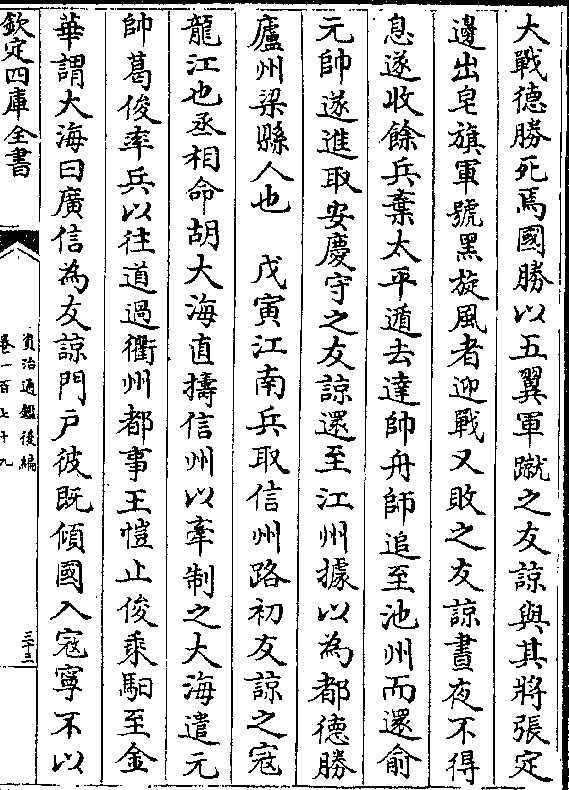 大戰德勝死焉國勝以五翼軍蹴之友諒與其將張定
邊出皂旗軍號黑旋風者迎戰又敗之友諒晝夜不得
息遂收餘兵棄太平遁去達帥舟師追至池州而還俞
元帥遂進取安慶守之友諒還至江州據以為都德勝
廬州梁縣人也　戊寅江南兵取信州路初友諒之寇
龍江也丞相命胡大海直擣信州以牽制之大海遣元
帥葛俊率兵以往道過衢州都事王愷止俊乘馹至金
華謂大海曰廣信為友諒門戶彼既傾國入寇寧不以
欽定四庫全書
資治通鑑後編
卷一百七十九
三十三